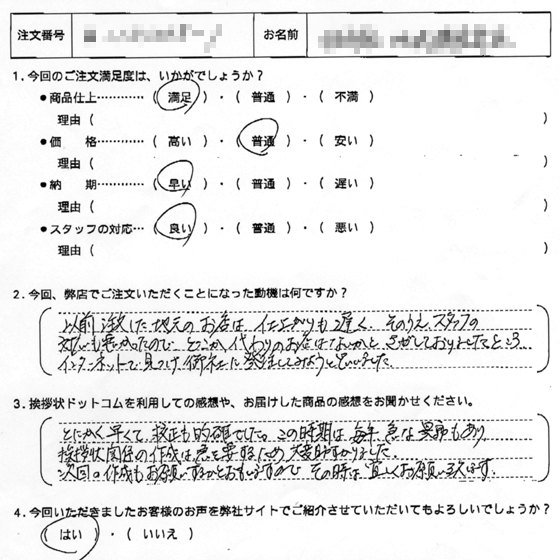 注文番号 お名前
1.今回のご注文満足度は、いかがでしょうか?
●商品仕上…………( 満足 )・( 普通 )・( 不満 )
理由( )
●価　格…………( 高い )・( 普通 )・( 安い )
理由( )
●納　期…………( 早い )・( 普通 )・( 遅い )
理由( )
●スタッフの対応…( 良い )・( 普通 )・( 悪い )
理由( )
2.今回、弊店でご注文いただくことになった動機は何ですか?
以前注文した地元のお店は、仕上がりも遅く、そのうえ、スタッフの
対応も悪かったので、どこか代わりのお店はないかと さがしておりましたところ
インターネットで見つけ、御社に発注してみようと思いました。
3.挨拶状ドットコムを利用しての感想や、お届けした商品の感想をお聞かせください。
とにかく早くて、校正も的確でした。この時期は毎年 急な異動もあり
挨拶状関係の作成は急を要するため 大変助かりました。
次回の作成もお願いするかとおもいますので その時は宜しくお願い致します。
4.今回いただきましたお客様のお声を弊社サイトでご紹介させていただいてもよろしいでしょうか?
( はい )・( いいえ )